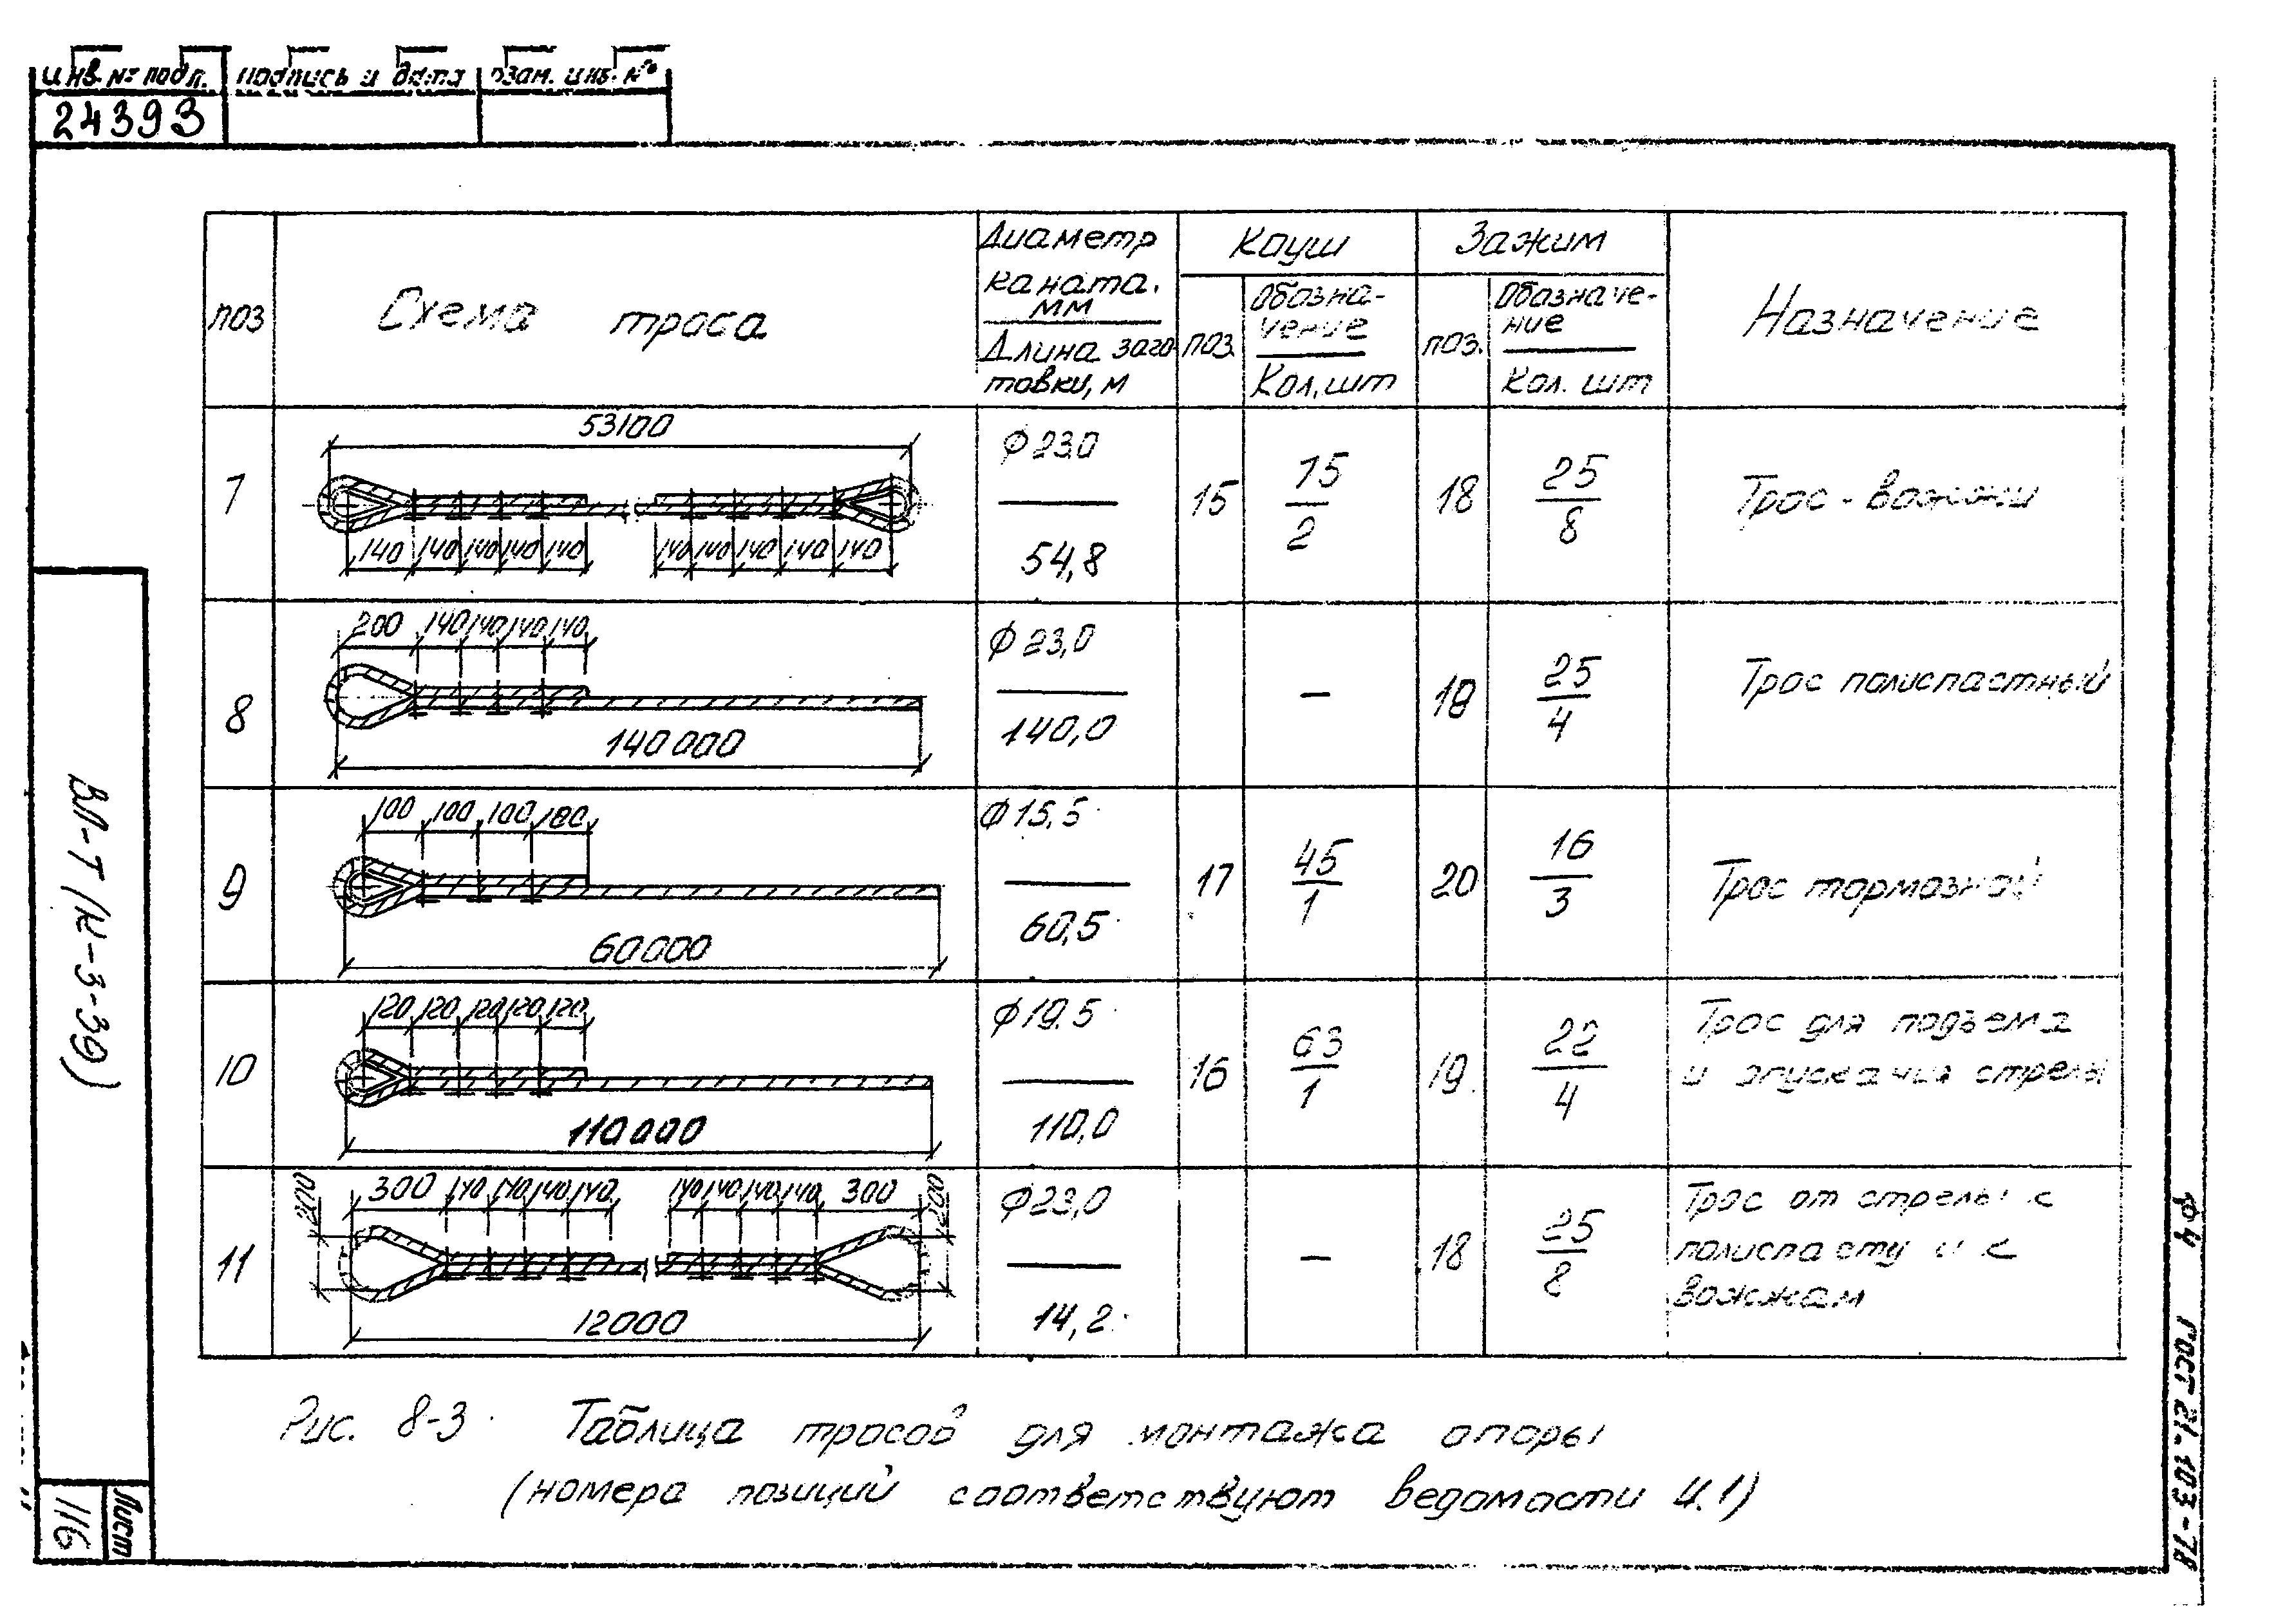 инв. № подп. подпись и дата взам. инв. №
24393
поз
Схема троса
Диаметр
каната,
мм
Длина заго
товки, м
Кауш
поз
Обозна-
чение
Кол, шт
Зажим
поз.
Обозначе-
ние
Кол. шт
Назначение
7
53100
140 140 140 140 140
140 140 140 140 140
ф 23,0
54,8
15
75
2
18
25
8
Трос-вожжи
8
200 140 140 140 140
140 000
ф 23,0
140,0
–
25
4
Трос полиспастный
9
100 100 100 100
60000
ф 15,5
60,5
17
45
1
20
16
3
Трос тормозной
10
120 120 120 120 120
110000
ф 19.5
110,0
16
63
1
19
22
4
Трос для подъема
и опускания стрелы
11
200
300 140 140 140 140
140 140 140 140 300
200
12000
ф 23,0
14,2
–
18
25
8
Трос от стрелы к
полиспасту и к
вожжам
Рис. 8-3. Таблица тросов для монтажа опоры
(номера позиций соответствуют ведомости ч.1)
ВЛ-Т (К-3-39)
Лист
116
ф 4 ГОСТ 21.103-78